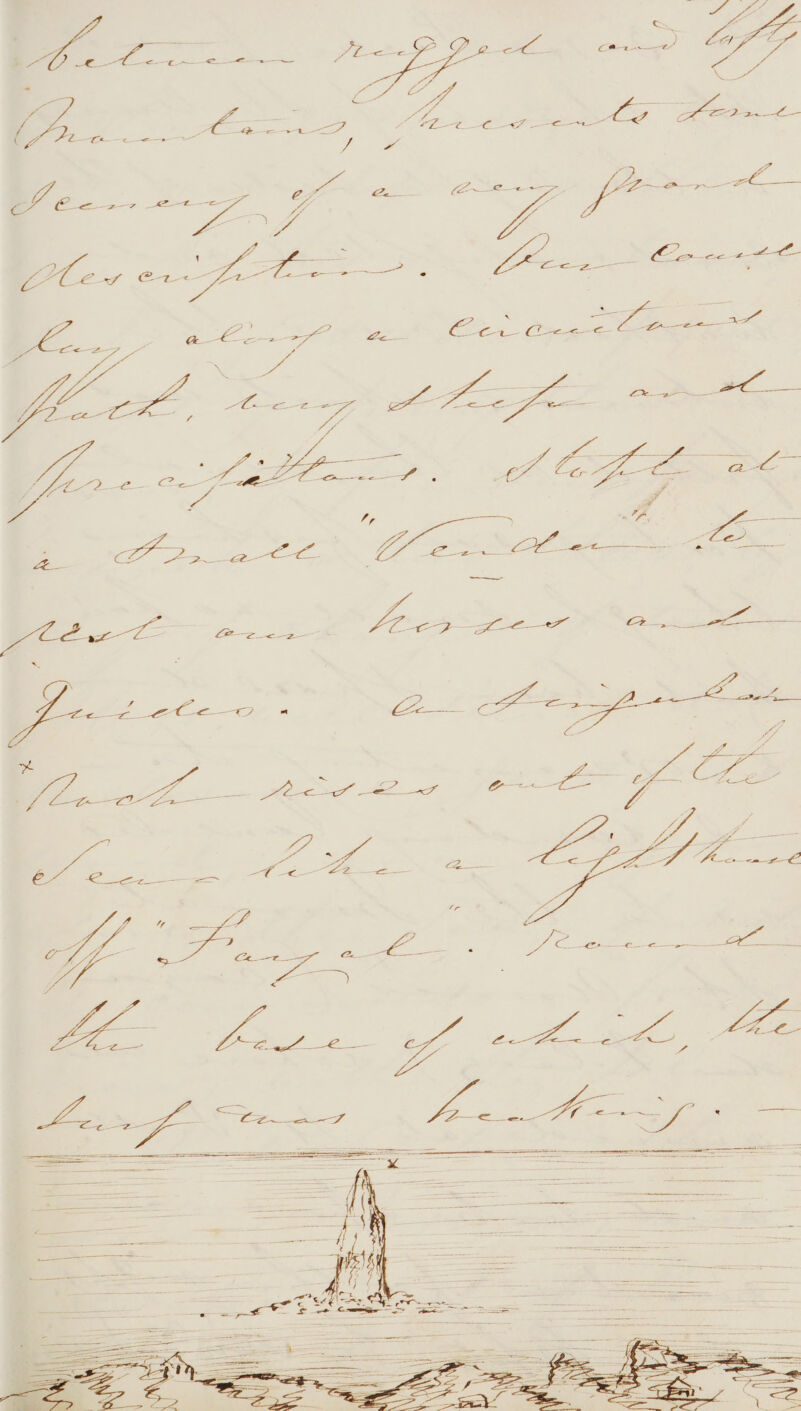 between rugged and lofty
Mountains, presents some
Scenery of a very Grand
description. Our Course
lay along a Circuitous
path, very steep and
precipitous. Stopt at
a small "Venda" to
rest our horses and
Guides. a singular
x Rock rises out of the
Sea - like a lighthouse
off "Fayal". round
the base of which, the
surf was breaking. —
x